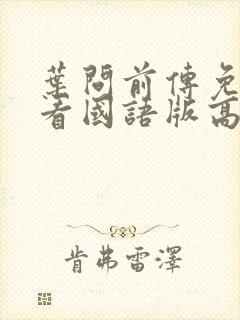 葉問前傳免
看國語版高
肯弗雷澤